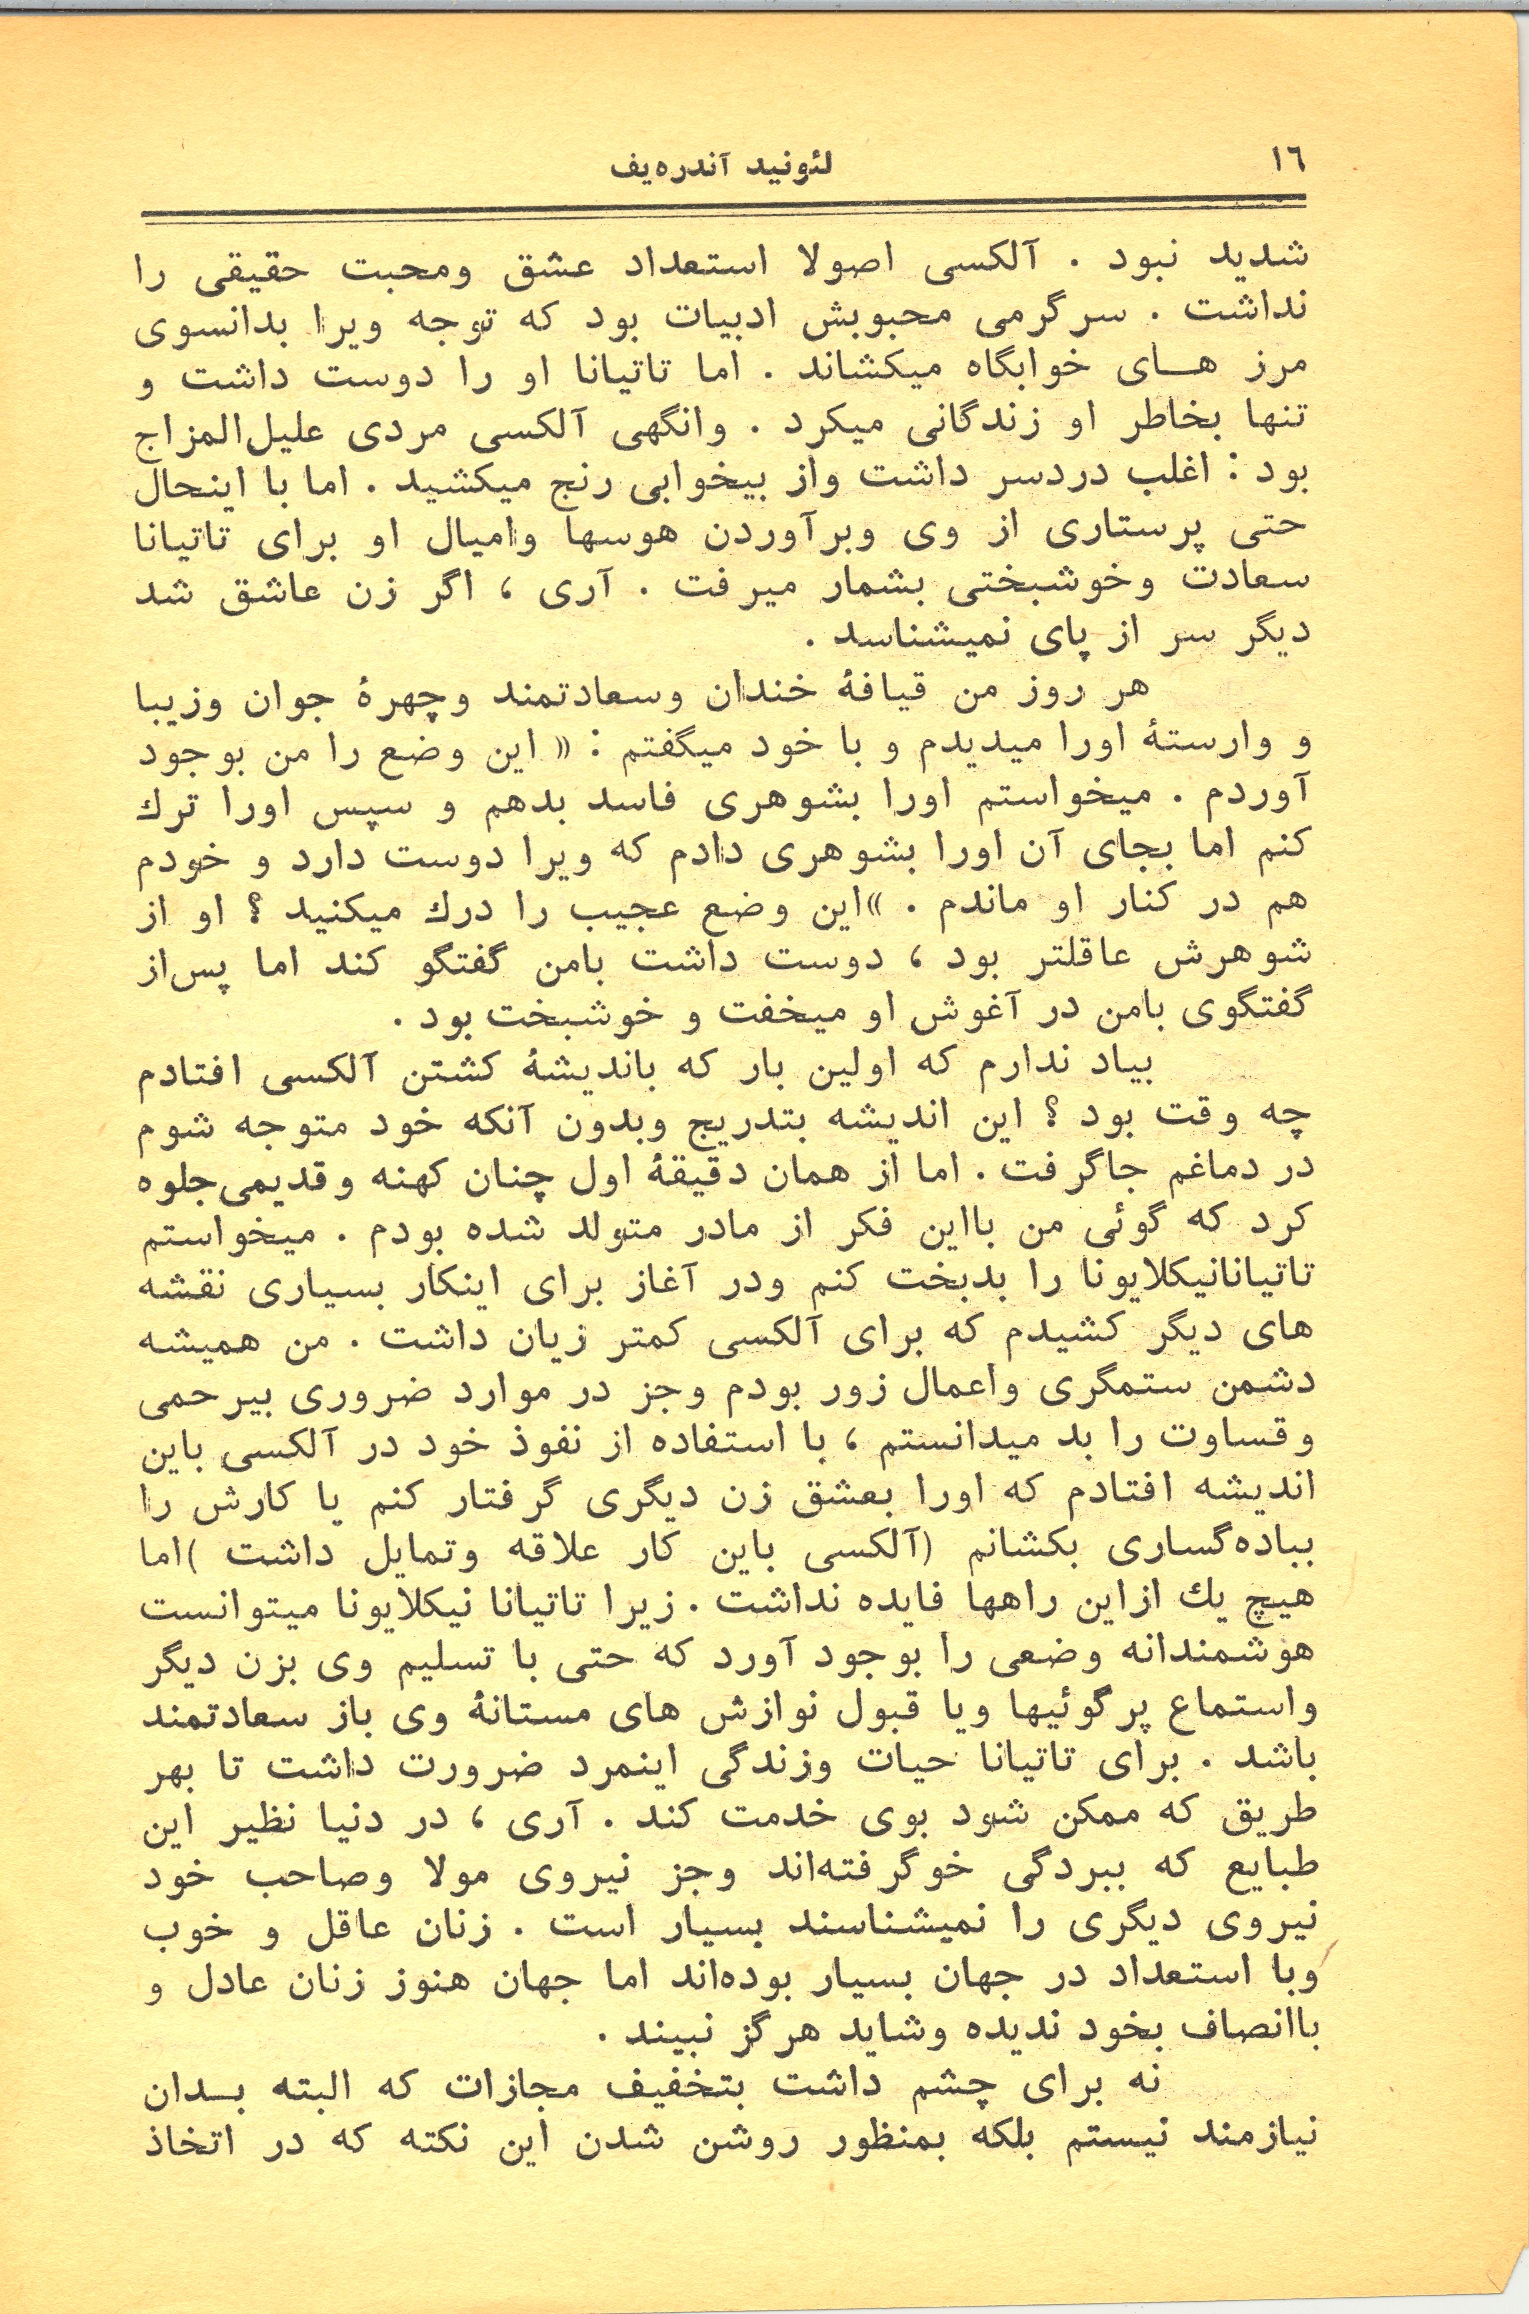 ١٦
لئونید آندره‌یف
شدید نبود . آلکسی اصولا استعداد عشق ومحبت حقیقی را
نداشت . سرگرمی محبوبش ادبیات بود که توجه ویرا بدانسوی
مرز هــای خوابگاه میکشاند . اما تاتیانا او را دوست داشت و
تنها بخاطر او زندگانی میکرد . وانگهی آلکسی مردی علیل‌المزاج
بود : اغلب دردسر داشت واز بیخوابی رنج میکشید . اما با اینحال
حتی پرستاری از وی وبرآوردن هوسها وامیال او برای تاتیانا
سعادت وخوشبختی بشمار میرفت . آری ، اگر زن عاشق شد
دیگر سر از پای نمیشناسد .
هر روز من قیافهٔ خندان وسعادتمند وچهرهٔ جوان وزیبا
و وارستهٔ اورا میدیدم و با خود میگفتم : « این وضع را من بوجود
آوردم . میخواستم اورا بشوهری فاسد بدهم و سپس اورا ترك
کنم اما بجای آن اورا بشوهری دادم که ویرا دوست دارد و خودم
هم در کنار او ماندم . »این وضع عجیب را درك میکنید ؟ او از
شوهرش عاقلتر بود ، دوست داشت بامن گفتگو کند اما پس‌از
گفتگوی بامن در آغوش او میخفت و خوشبخت بود .
بیاد ندارم که اولین بار که باندیشهٔ کشتن آلکسی افتادم
چه وقت بود ؟ این اندیشه بتدریج وبدون آنکه خود متوجه شوم
در دماغم جاگرفت . اما از همان دقیقهٔ اول چنان کهنه وقدیمی‌جلوه
کرد که گوئی من بااین فکر از مادر متولد شده بودم . میخواستم
تاتیانانیکلایونا را بدبخت کنم ودر آغاز برای اینکار بسیاری نقشه
های دیگر کشیدم که برای آلکسی کمتر زیان داشت . من همیشه
دشمن ستمگری واعمال زور بودم وجز در موارد ضروری بیرحمی
وقساوت را بد میدانستم ، با استفاده از نفوذ خود در آلکسی باین
اندیشه افتادم که اورا بعشق زن دیگری گرفتار کنم یا کارش را
بباده‌گساری بکشانم (آلکسی باین کار علاقه وتمایل داشت )اما
هیچ یك ازاین راهها فایده نداشت . زیرا تاتیانا نیکلایونا میتوانست
هوشمندانه وضعی را بوجود آورد که حتی با تسلیم وی بزن دیگر
واستماع پرگوئیها ویا قبول نوازش های مستانهٔ وی باز سعادتمند
باشد . برای تاتیانا حیات وزندگی اینمرد ضرورت داشت تا بهر
طریق که ممکن شود بوی خدمت کند . آری ، در دنیا نظیر این
طبایع که ببردگی خوگرفته‌اند وجز نیروی مولا وصاحب خود
نیروی دیگری را نمیشناسند بسیار است . زنان عاقل و خوب
وبا استعداد در جهان بسیار بوده‌اند اما جهان هنوز زنان عادل و
باانصاف بخود ندیده وشاید هرگز نبیند .
نه برای چشم داشت بتخفیف مجازات که البته بــدان
نیازمند نیستم بلکه بمنظور روشن شدن این نکته که در اتخاذ